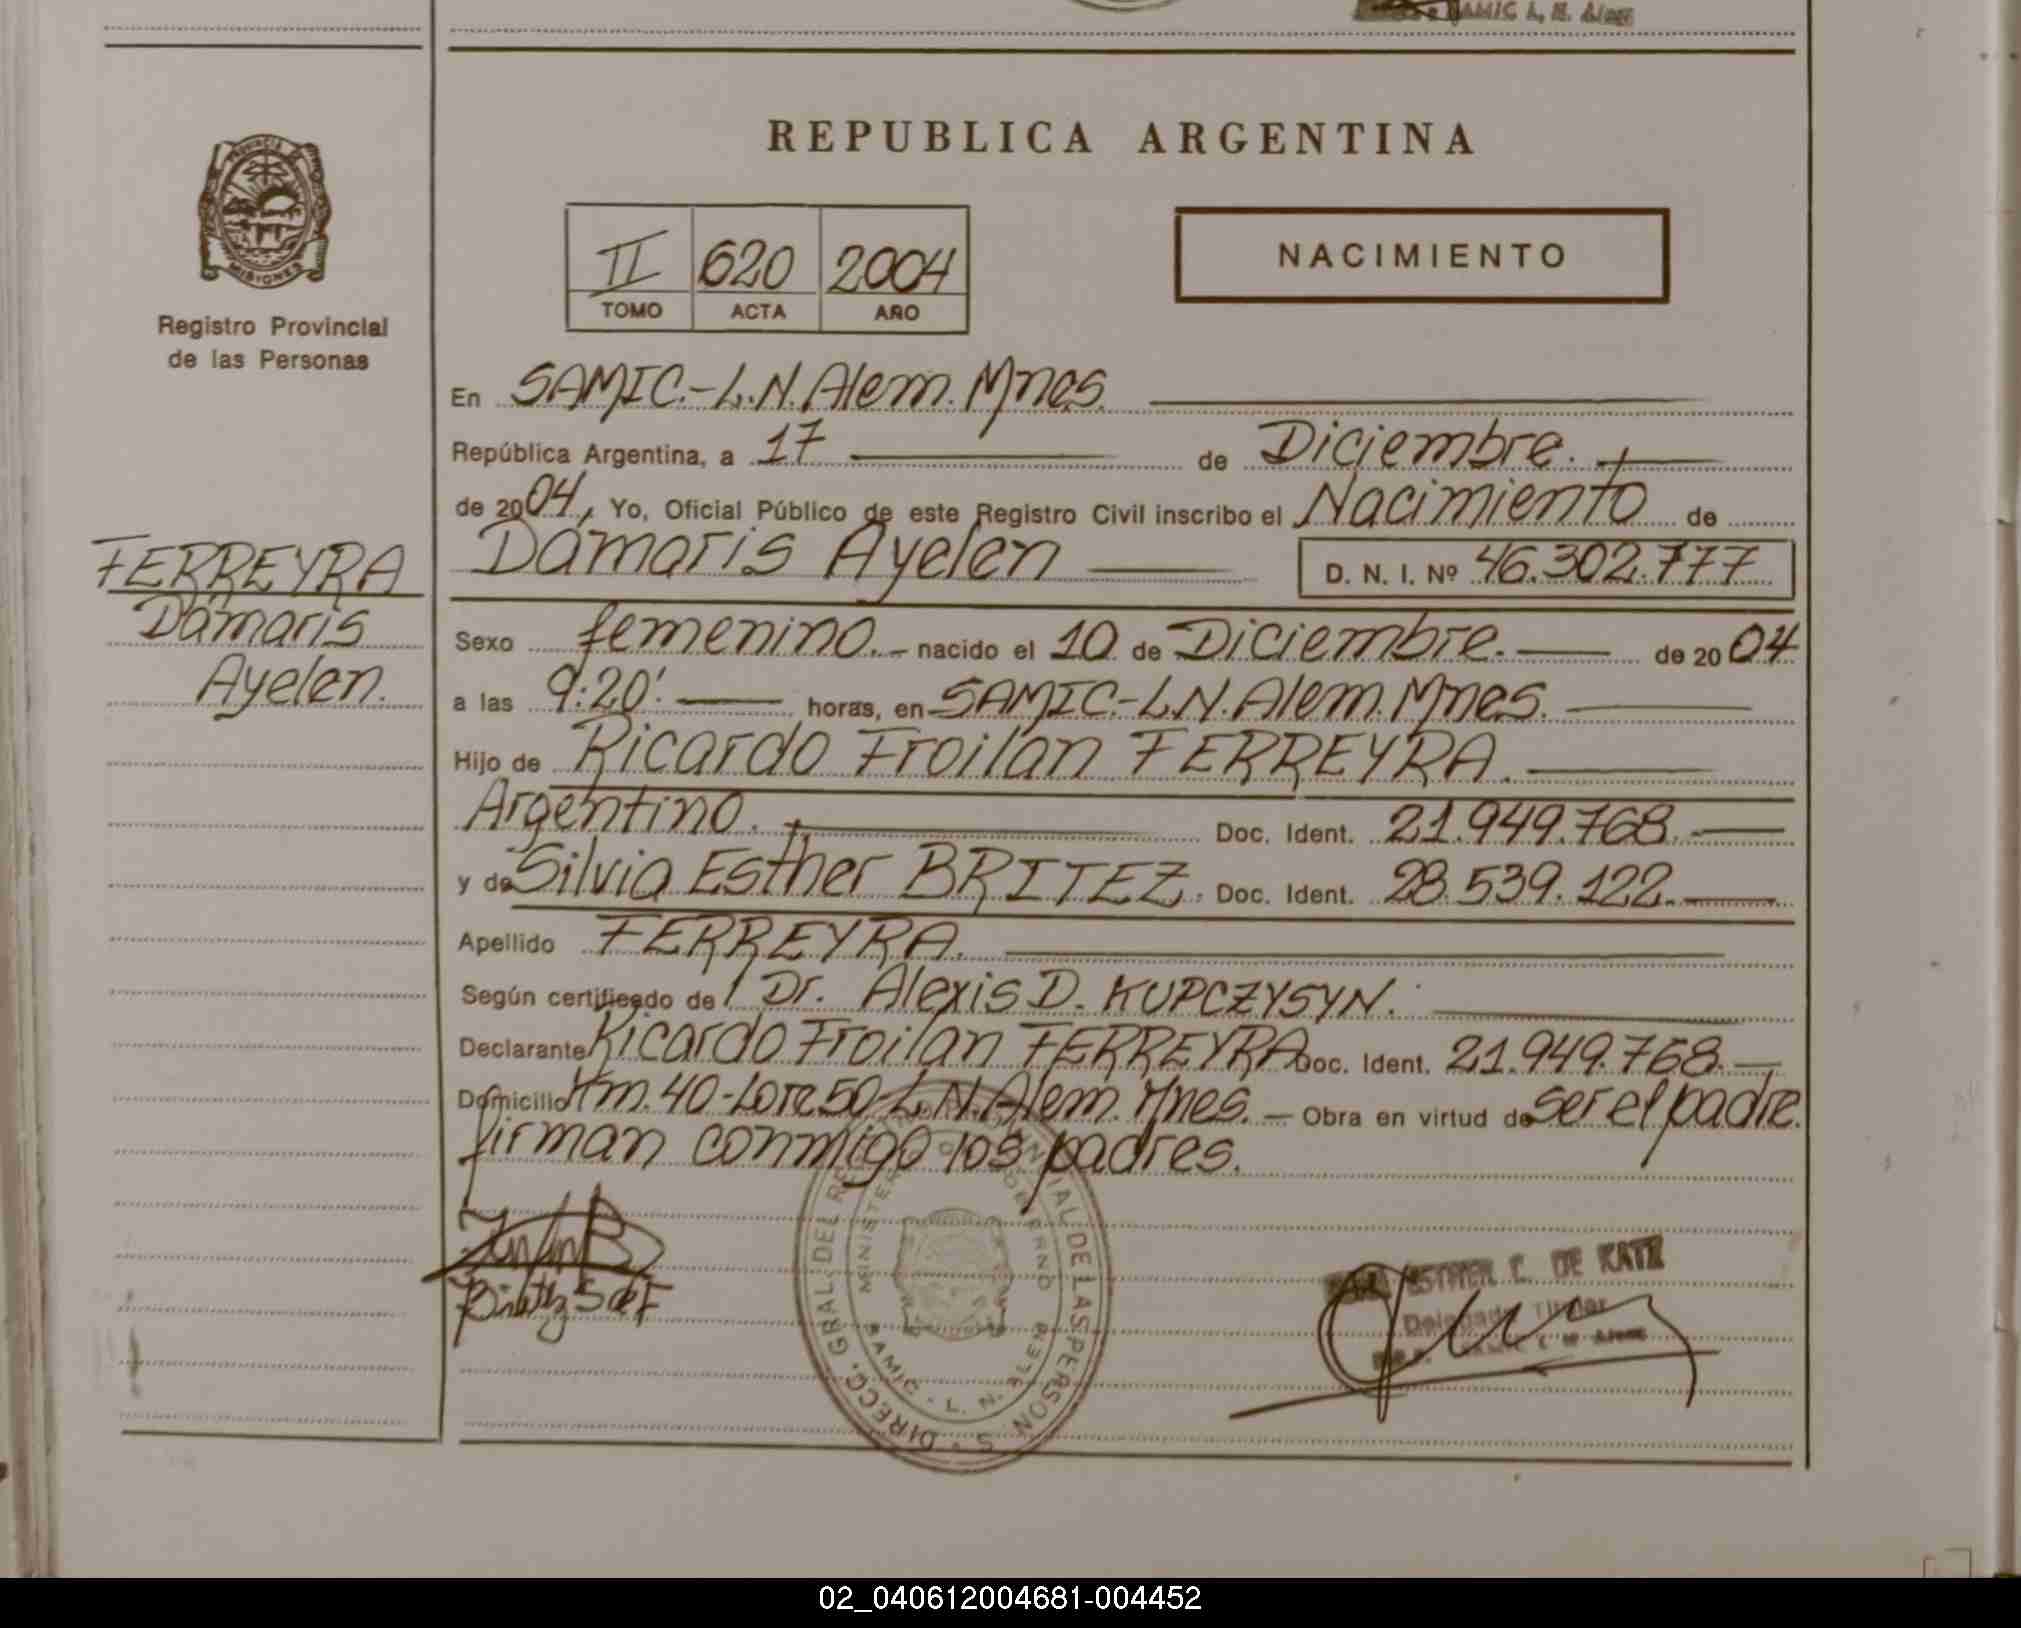 SAMIC L. N. Alem
REPUBLICA ARGENTINA
PROVINCIA DE
MISIONES
Registro Provincial
de las Personas
II 620 2004
TOMO ACTA AÑO
NACIMIENTO
En SAMIC.-L.N.Alem.Mnes.
República Argentina, a 17 de Diciembre.
de 2004, Yo, Oficial Público de este Registro Civil inscribo el Nacimiento de
Damaris Ayelen D. N. I. Nº 46.302.777
FERREYRA
Damaris
Ayelen.
Sexo femenino.- nacido el 10 de Diciembre. de 2004
a las 9:20' horas, en SAMIC.-L.N.Alem.Mnes.
Hijo de Ricardo Froilan FERREYRA.
Argentino. Doc. Ident. 21.949.768.
y de Silvia Esther BRITEZ. Doc. Ident. 28.539.122.
Apellido FERREYRA.
Según certificado de Dr. Alexis D. KUPCZYSYN.
Declarante Ricardo Froilan FERREYRA Doc. Ident. 21.949.768.-
Domicilio Km.40-Lote 50-L.N.Alem.Mnes.- Obra en virtud de ser el padre.
firman conmigo los padres.
ESTHER C. DE KATZ
Delegada Titular
SAMIC L N Alem
DIRECC. GRAL. DEL REGISTRO PROVINCIAL DE LAS PERSONAS
MINISTERIO DE GOBIERNO
SAMIC - L. N. ALEM
02_040612004681-004452